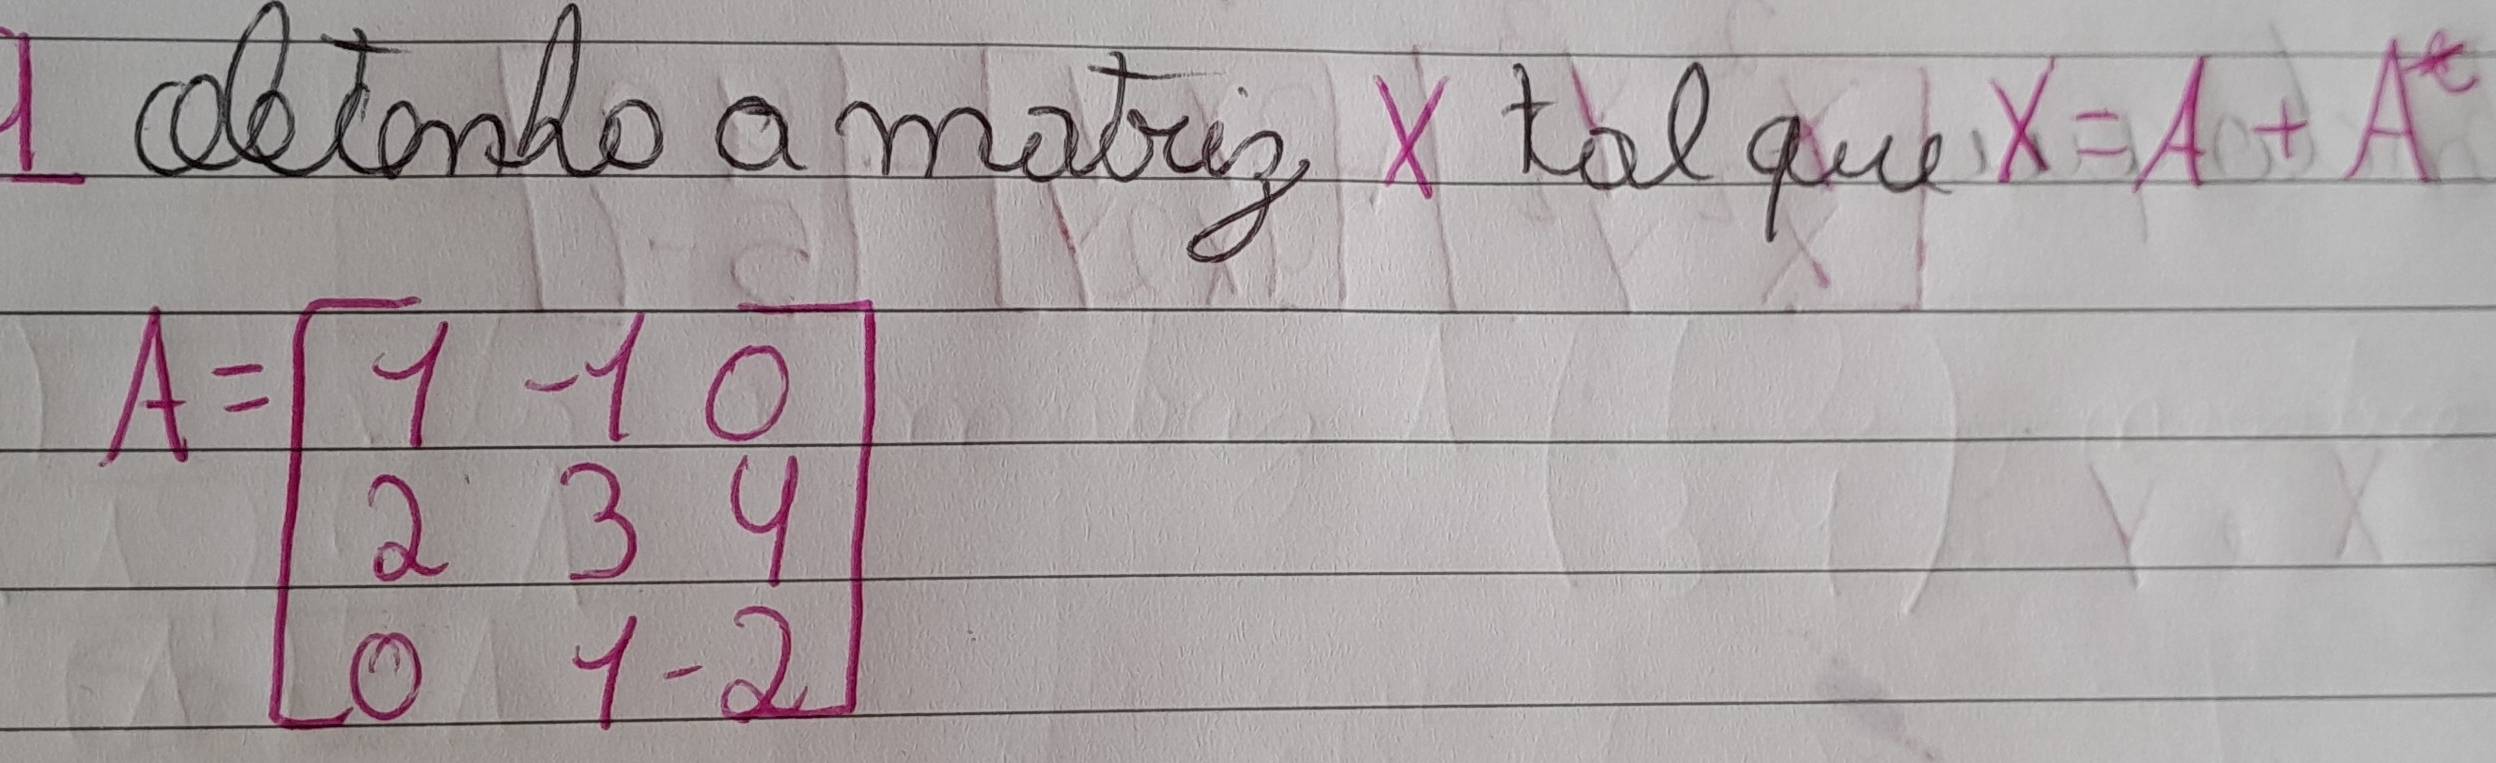 1 obtenha a matriz X tal que X = A + Aᵗ
A = [ 1 -1 0
2 3 4
0 1 -2 ]